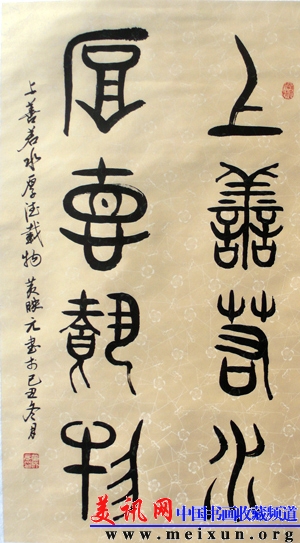 上善若水
厚德载物
上善若水厚德载物 黄映元書于己丑冬月
美讯网
中国书画收藏频道
www.meixun.org